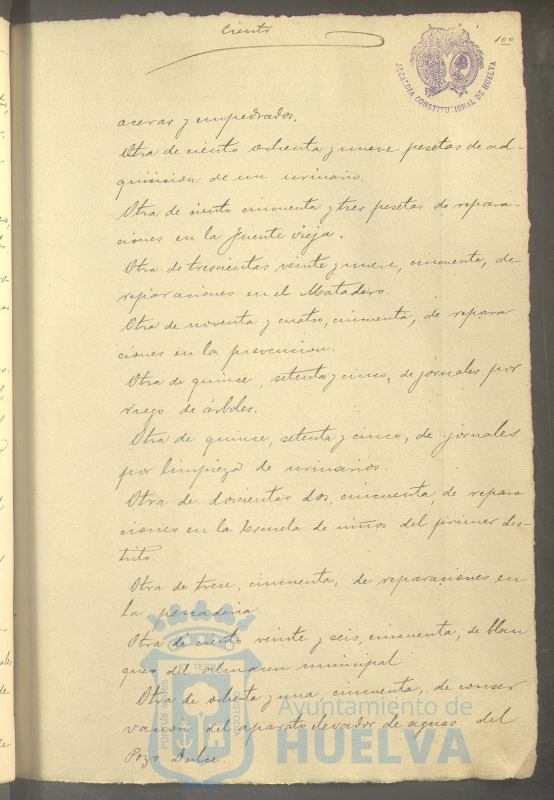 Ciento
100
ALCALDIA CONSTITUCIONAL DE HUELVA
aceras y empedrados.
Otra de ciento ochenta y nueve pesetas de ad-
quisicion de un urinario.
Otra de ciento cincuenta y tres pesetas de repara-
ciones en la fuente vieja.
Otra de trescientas veinte y nueve, cincuenta, de
reparaciones en el Matadero.
Otra de noventa y cuatro, cincuenta, de repara
ciones en la prevencion.
Otra de quince, setenta y cinco, de jornales por
riego de árboles.
Otra de quince, setenta y cinco, de jornales
por limpieza de urinarios.
Otra de doscientas dos, cincuenta, de repara
ciones en la Escuela de niños del primer dis-
trito.
Otra de trece, cincuenta, de reparaciones en
la pescaderia.
Otra de ciento veinte y seis, cincuenta, de blan
queo del almacen municipal
Otra de ochenta y una, cincuenta, de conser
vacion del aparato elevador de aguas del
Pozo Dulce.
Ayuntamiento de
HUELVA